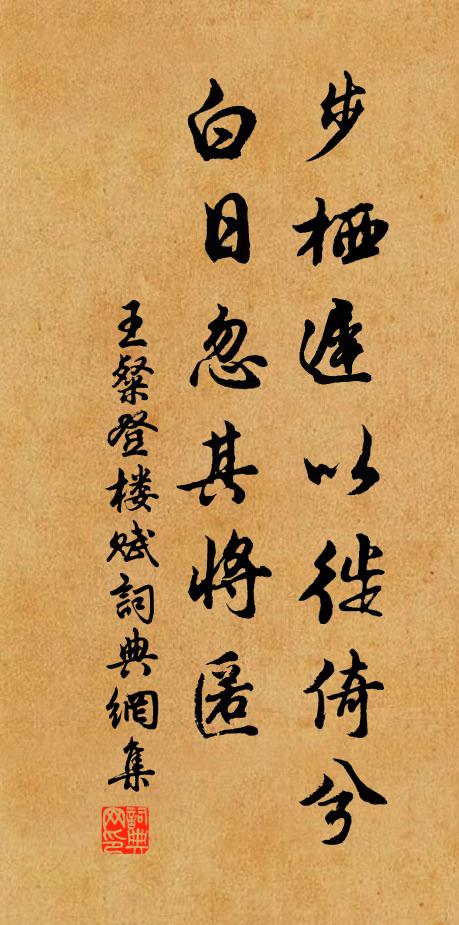 步栖遲以徙倚兮
白日忽其將匿
王粲登楼赋詞典網集
詞典网印